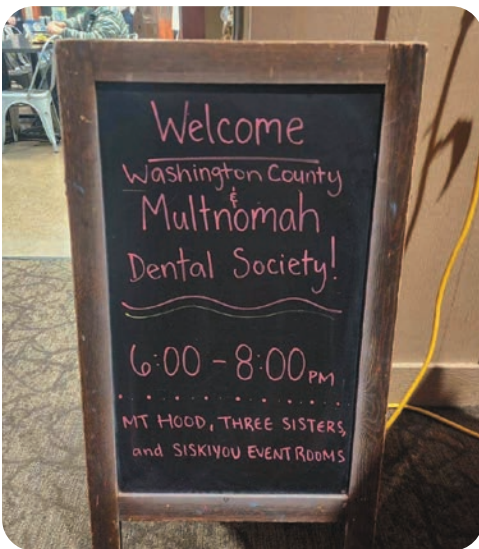 Welcome
Washington County
&
Multnomah
Dental Society!
6:00 - 8:00 PM
MT HOOD, THREE SISTERS,
and SISKIYOU EVENT ROOMS